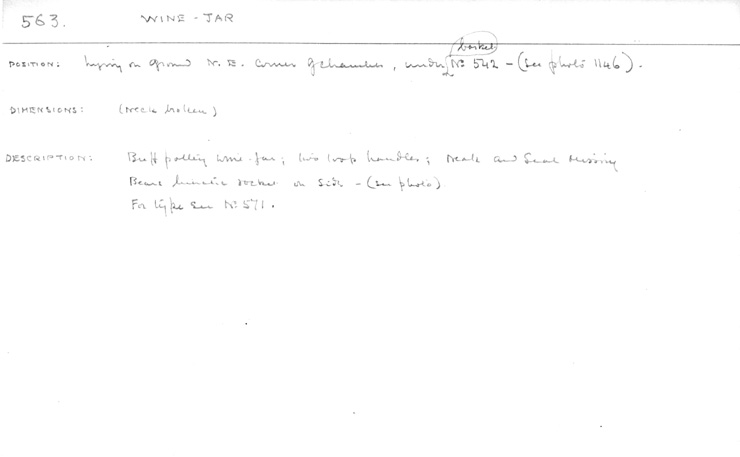 563. WINE-JAR
basket
POSITION: Lying on ground N.E. corner of chamber, under No 542 - (see photo 1146).
DIMENSIONS: (Neck broken)
DESCRIPTION: Buff pottery wine-jar; two loop handles; Neck and Seal missing
Bears hieratic docket on side - (see photo).
For type see No 571.